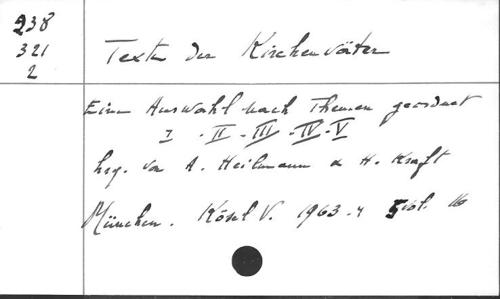 238
321
2
Texte der Kirchenväter
Eine Auswahl nach Themen geordnet
I - II - III - IV - V
hrg. von A. Heilmann & H. Kraft
München. Kösel V. 1963-4 5 vol. 16